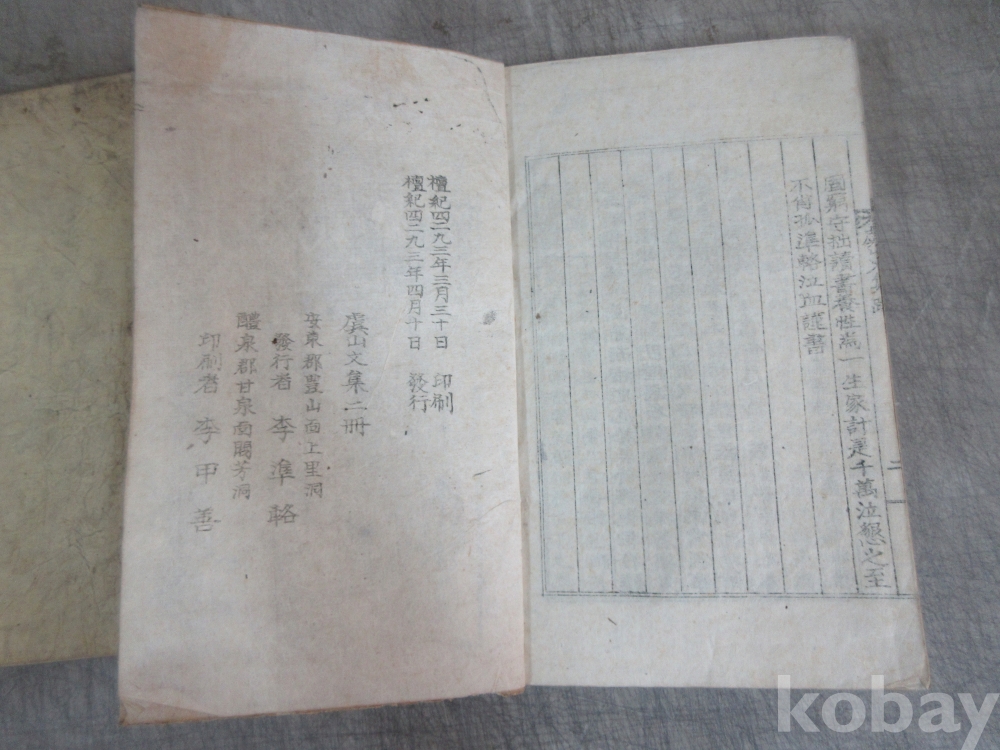 固窮守拙讀書養性爲一生家計是千萬泣懇之至
不肖孤準輅泣血謹書
二
一
檀紀四二九三年三月三十日 印刷
檀紀四二九三年四月十日 發行
虞山文集二冊
安東郡豊山面上里洞
發行者 李準輅
醴泉郡甘泉面閥芳洞
印刷者 李甲善
kobay